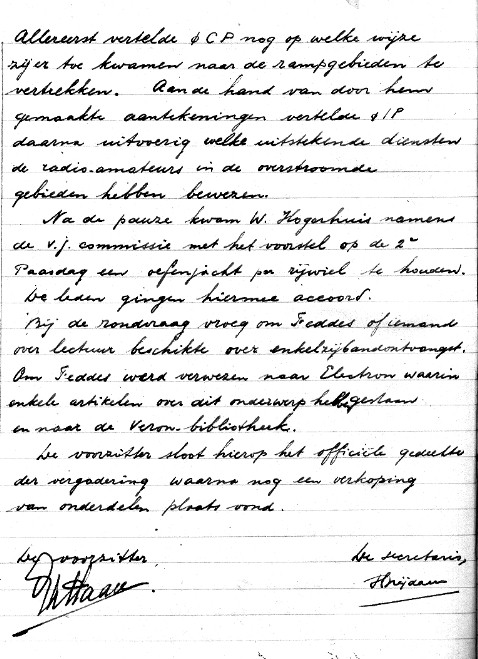 Allereerst vertelde φCP nog op welke wijze
zij er toe kwamen naar de rampgebieden te
vertrekken. Aan de hand van door hem
gemaakte aantekeningen vertelde φIP
daarna uitvoerig welke uitstekende diensten
de radio-amateurs in de overstroomde
gebieden hebben bewezen.
Na de pauze kwam W. Hogerhuis namens
de v.j. commissie met het voorstel op de 2e
Paasdag een oefenjacht per rijwiel te houden.
De leden gingen hiermee accoord.
Bij de rondvraag vroeg om Feddes of iemand
over lectuur beschikte over enkelzijbandontvangst.
Om Feddes werd verwezen naar Electron waarin
enkele artikelen over dit onderwerp hebben gestaan
en naar de Veron-bibliotheek.
De voorzitter sloot hierop het officiële gedeelte
der vergadering waarna nog een verkoping
van onderdelen plaats vond.
De voorzitter,
De secretaris,